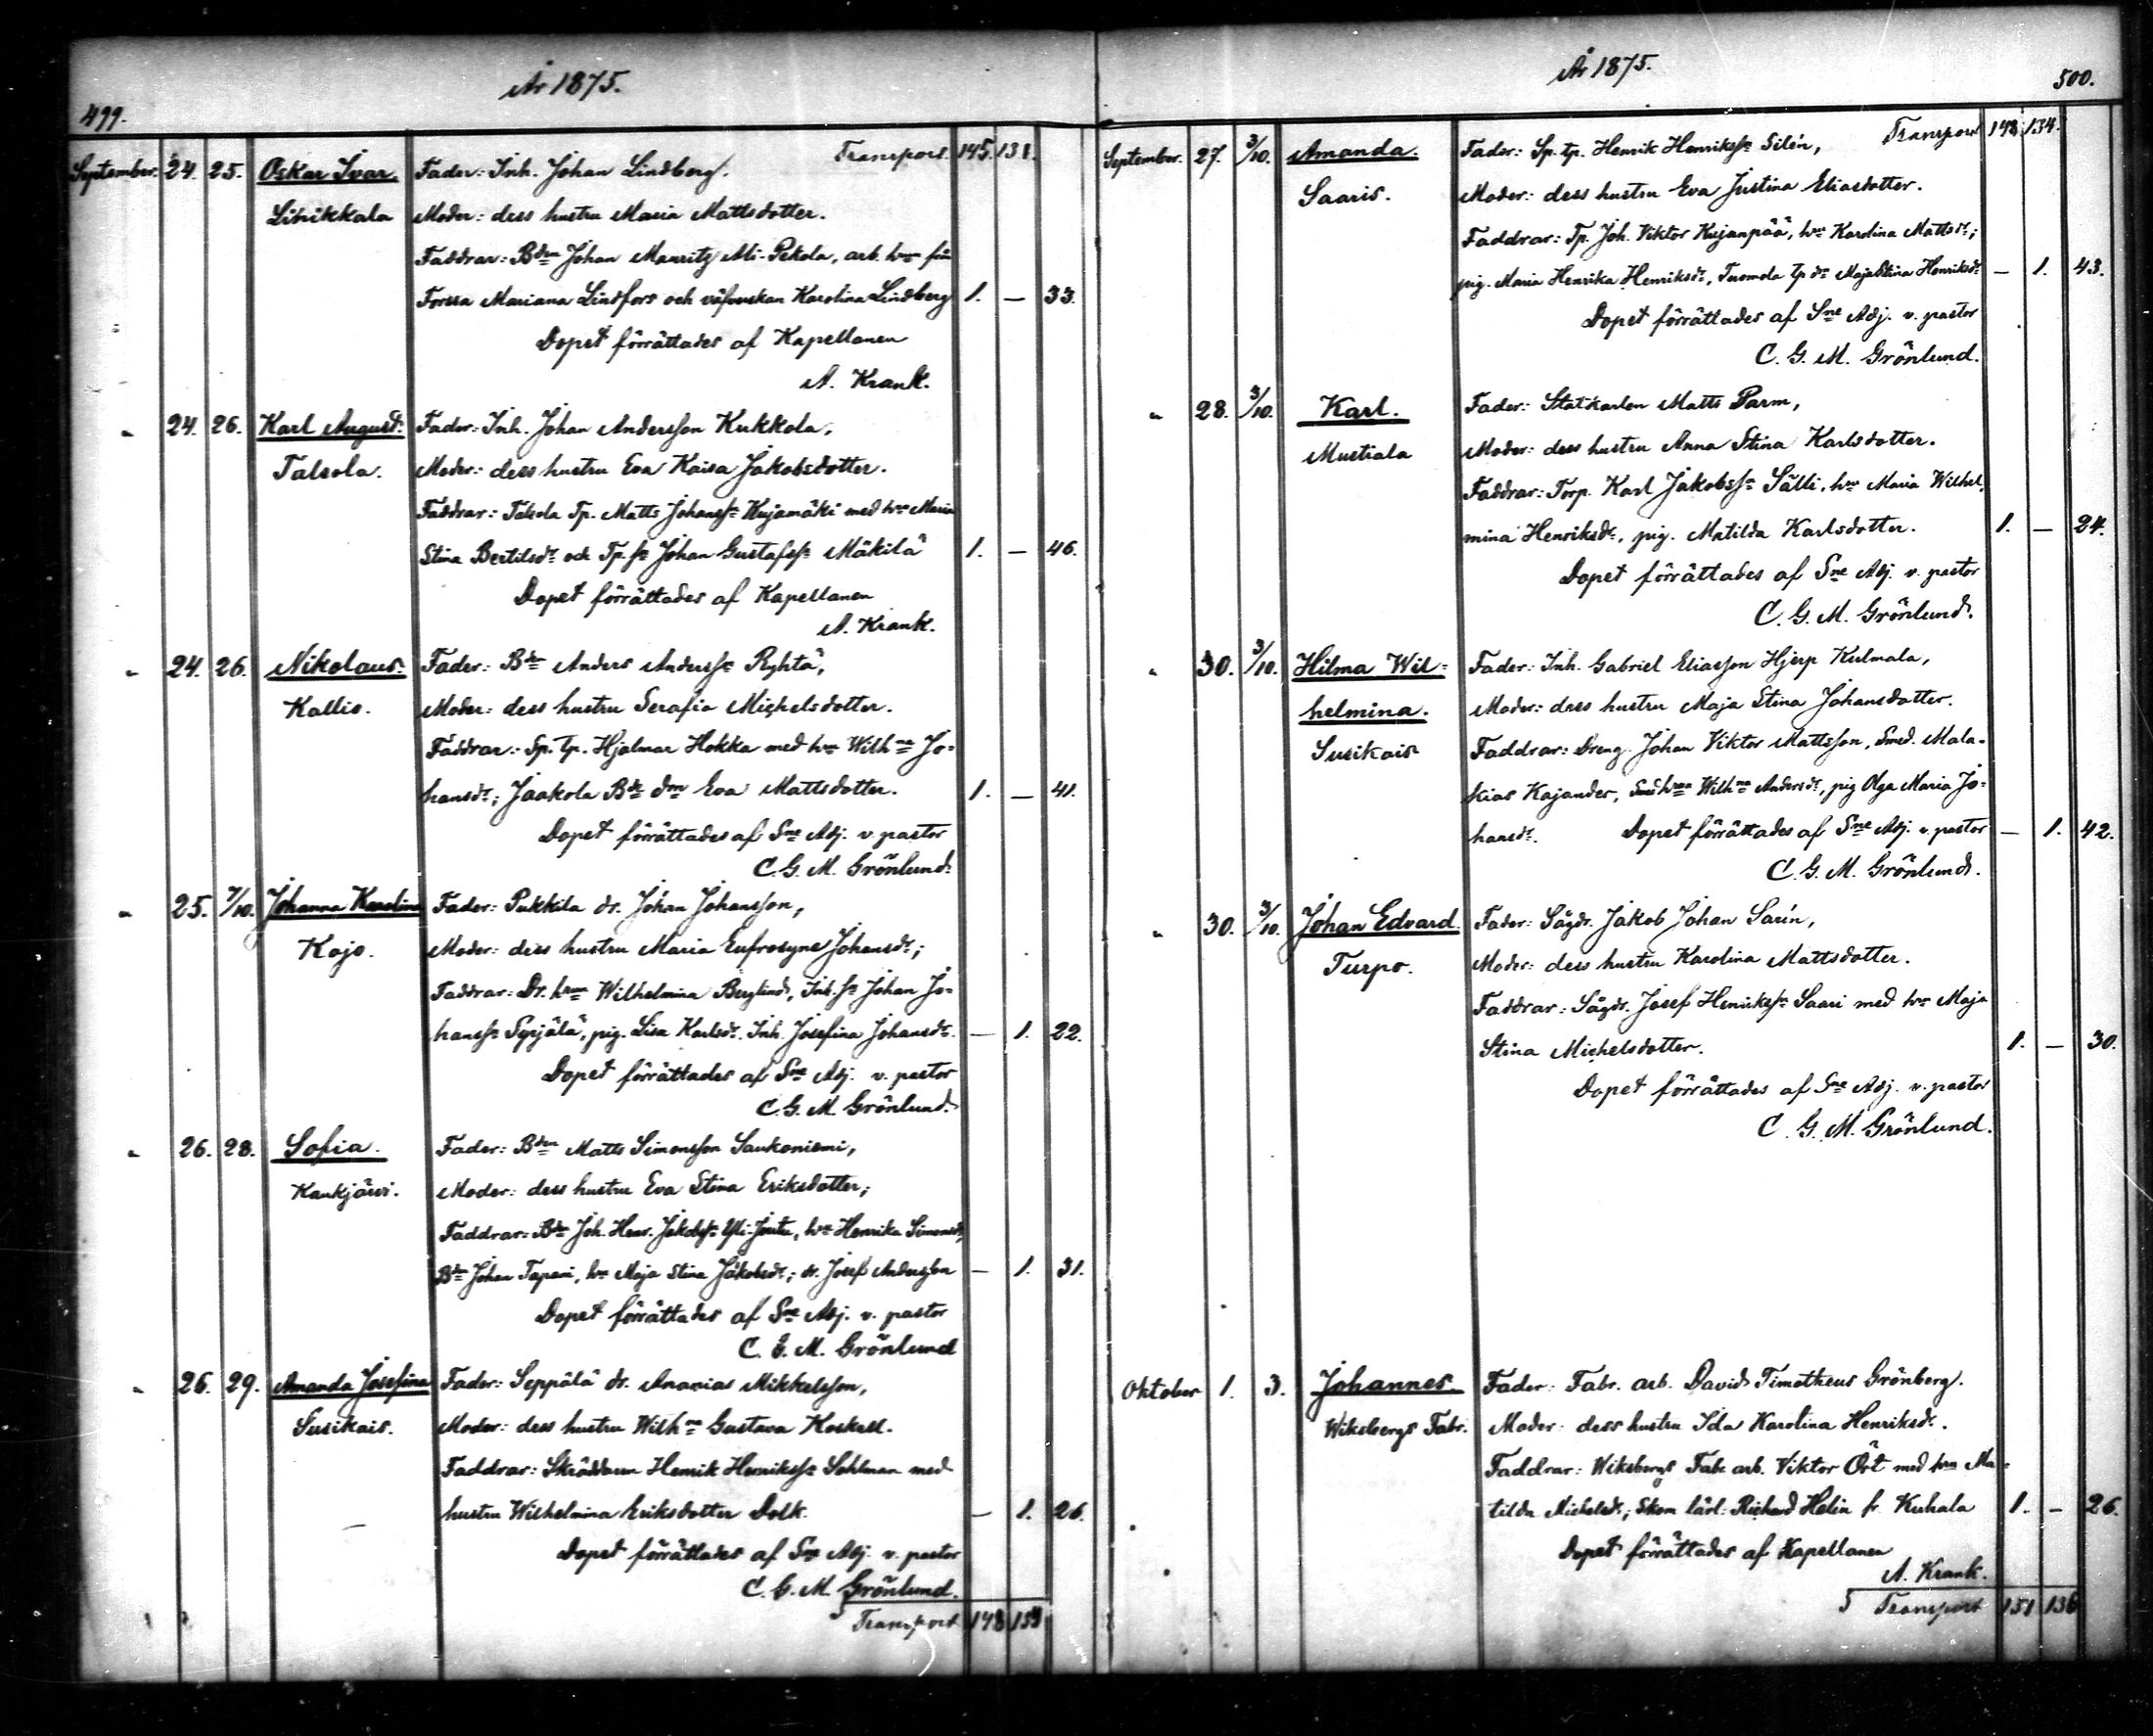 499.
År 1875.
Transport. 145. 131.
September. 24. 25. Oskar Ivar. Fader: Inh. Johan Lindberg.
Liesikkala Moder: dess hustru Maria Mattsdotter.
Faddrar: Bdn Johan Mauritz Ali-Pekola, arb. hun från
Forssa Mariana Lindfors och väfverskan Karolina Lindberg 1. — 33.
Dopet förrättades af Kapellanen
A. Krank.
" 24. 26. Karl August. Fader: Inh. Johan Andersson Kukkola,
Talsola. Moder: dess hustru Eva Kaisa Jakobsdotter.
Faddrar: Talsola Tp. Matts Johanss. Kujamäki med hu Maria
Stina Bertilsdr och Tp. sn Johan Gustafss. Mäkilä 1. — 46.
Dopet förrättades af Kapellanen
A. Krank.
" 24. 26. Nikolaus. Fader: Bdn Anders Anderss. Ryhtä,
Kallio. Moder: dess hustru Serafia Michelsdotter.
Faddrar: Sp. tp. Hjalmar Hokka med hu Wilhna Jo-
hansdr; Jaakola Bde dn Eva Mattsdotter. 1. — 41.
Dopet förrättades af Sne Adj. v. pastor
C. G. M. Grönlund.
" 25. 7/10. Johanna Karolina Fader: Pukkila dr. Johan Johansson,
Kojo. Moder: dess hustru Maria Eufrosyne Johansdr;
Faddrar: Dr. hun Wilhelmina Berglund, Inh. sn Johan Jo-
hanss. Syrjälä, pig. Lisa Karlsdr. Inh. Josefina Johansdr. — 1. 22.
Dopet förrättades af Sne Adj. v. pastor
C. G. M. Grönlund.
" 26. 28. Sofia. Fader: Bdn Matts Simonsson Saukoniemi,
Kaukjärvi. Moder: dess hustru Eva Stina Eriksdotter;
Faddrar: Bdn Joh. Henr. Jakobss. Yli-Jouta, hu Henrika Simonsdr,
Bdn Johan Tapani, hu Maja Stina Jakobsdr; dr. Josef Andersson — 1. 31.
Dopet förrättades af Sne Adj. v. pastor
C. G. M. Grönlund
" 26. 29. Amanda Josefina Fader: Seppälä dr. Ananias Mikkelsson,
Susikais. Moder: dess hustru Wilhna Gustava Koskell.
Faddrar: Skräddaren Henrik Henrikss. Sohlman med
hustru Wilhelmina Eriksdotter Dolk. — 1. 26.
Dopet förrättades af Sne Adj. v. pastor
C. G. M. Grönlund.
Transport 148 134
År 1875.
500.
Transport 148. 134.
September. 27. 3/10. Amanda. Fader: Sp. tp. Henrik Henrikss. Silén,
Saaris. Moder: dess hustru Eva Justina Eliasdotter.
Faddrar: Tp. Joh. Viktor Kujanpää, hu Karolina Mattsdr;
pig. Maria Henrika Henriksdr, Tuomola tp dr Maja Stina Henriksdr — 1. 43.
Dopet förrättades af Sne Adj. v. pastor
C. G. M. Grönlund.
" 28. 3/10. Karl. Fader: Statkarlen Matts Parm,
Mustiala Moder: dess hustru Anna Stina Karlsdotter.
Faddrar: Torp. Karl Jakobss. Sälli, hu Maria Wilhel-
mina Henriksdr, pig. Matilda Karlsdotter. 1. — 24.
Dopet förrättades af Sne Adj. v. pastor
C. G. M. Grönlund.
" 30. 3/10. Hilma Wil- Fader: Inh. Gabriel Eliasson Hjerp Kulmala,
helmina. Moder: dess hustru Maja Stina Johansdotter.
Susikais Faddrar: Dreng. Johan Viktor Mattsson, Smed. Mala-
kias Kajander, Smed hun Wilhna Andersdr, pig Olga Maria Jo-
hansdr. Dopet förrättades af Sne Adj. v. pastor — 1. 42.
C. G. M. Grönlund.
" 30. 3/10. Johan Edvard. Fader: Sågdr. Jakob Johan Sarin,
Turpo. Moder: dess hustru Karolina Mattsdotter.
Faddrar: Sågdr. Josef Henrikss. Saari med hu Maja
Stina Michelsdotter. 1. — 30.
Dopet förrättades af Sne Adj. v. pastor
C. G. M. Grönlund.
Oktober 1. 3. Johannes. Fader: Fabr. arb. David Timotheus Grönberg.
Wiksbergs Fabr. Moder: dess hustru Ida Karolina Henriksdr.
Faddrar: Wiksbergs Fabr. arb. Viktor Öst med hun Ma-
tilda Michelsdr; Skom. lärl. Richard Helin fr. Kuhala 1. — 26.
Dopet förrättades af Kapellanen
A. Krank.
Transport 151 136